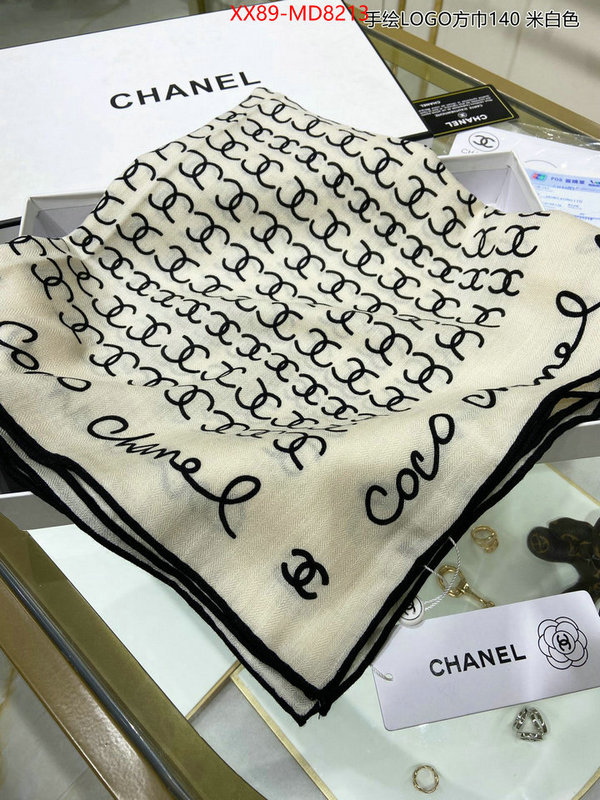 XX89-MD8213
手绘LOGO方巾140 米白色
CHANEL
CHANEL
coco
Chanel
coco
Chanel
CHANEL